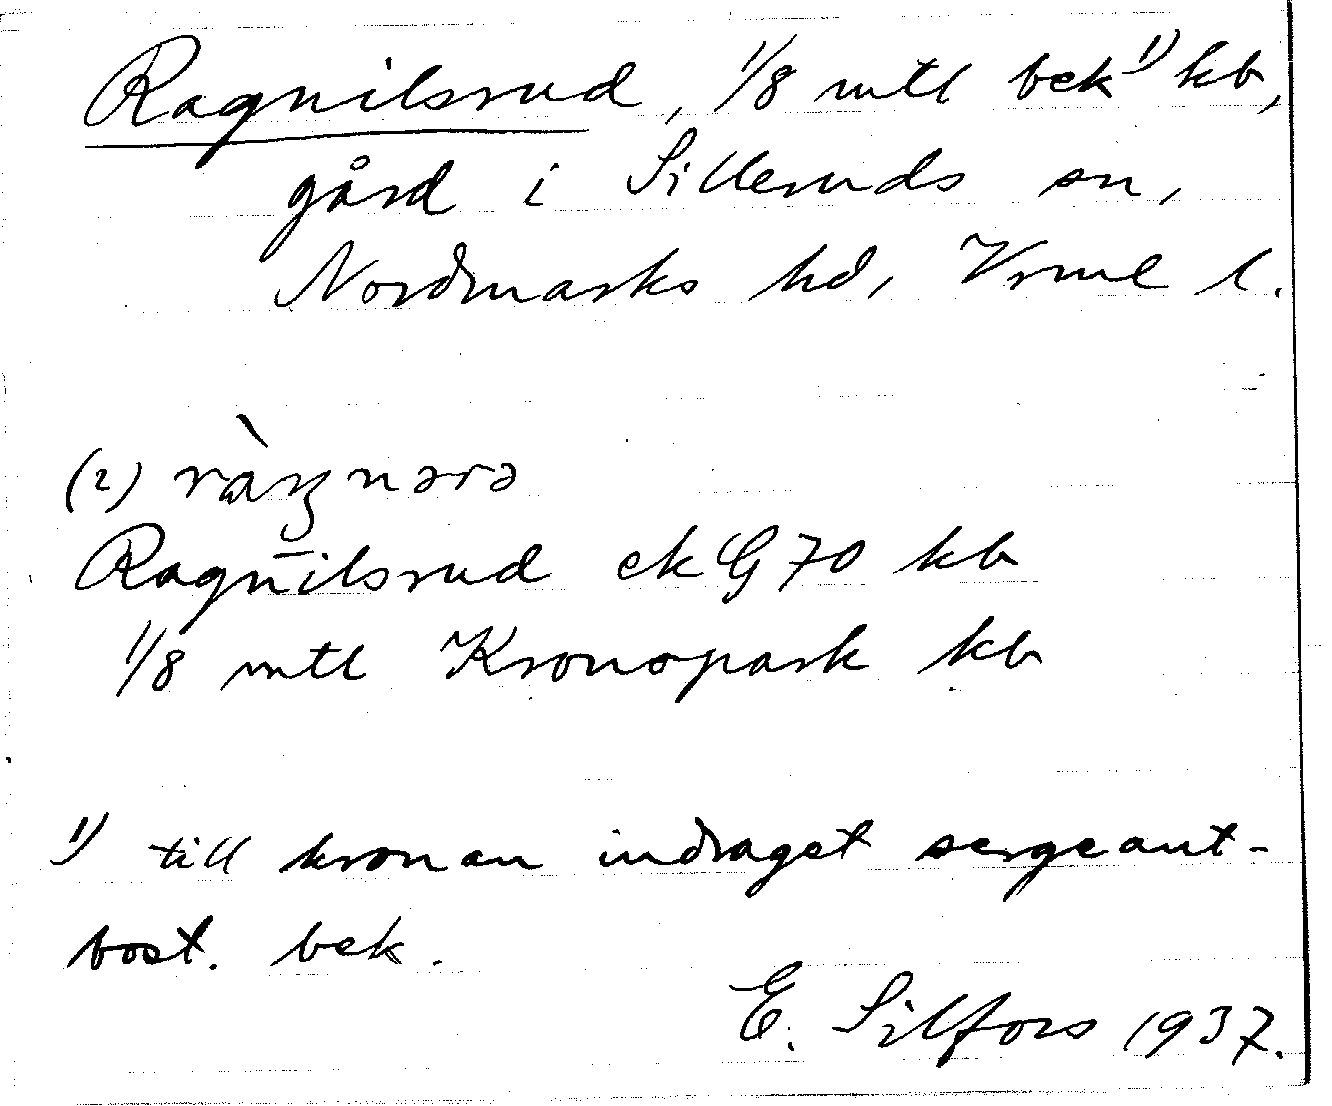 Ragnilsrud, 1/8 mtl bek¹⁾ kb,
gård i Silleruds sn,
Nordmarks hd, Vrml l.
(2) ràŋnərə
Ragnilsrud ek G 70 kb
1/8 mtl Kronopark kb
1) till kronan indraget sergeant-
bost. bek.
E. Silfors 1937.